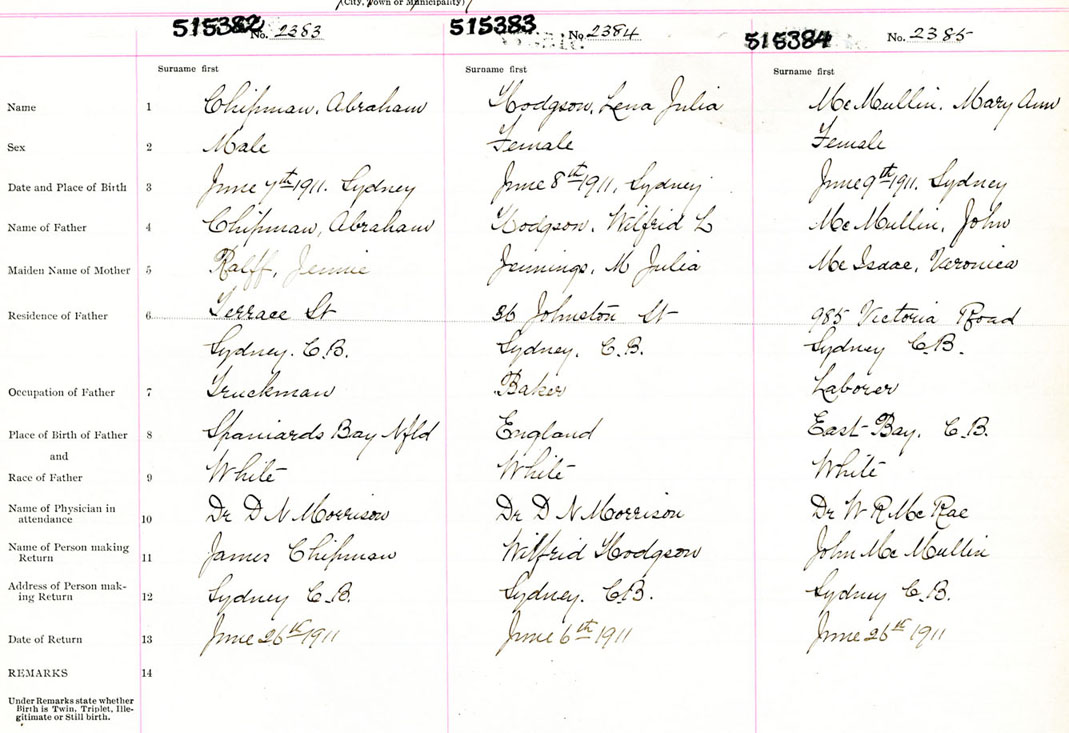 (City, Town or Municipality)
515382 No. 2383 515383 No. 2384 515384 No. 2385
Surname first Surname first Surname first
Name 1 Chipman, Abraham Hodgson, Lena Julia McMullin, Mary Ann
Sex 2 Male Female Female
Date and Place of Birth 3 June 7th 1911. Sydney June 8th 1911, Sydney June 9th 1911. Sydney
Name of Father 4 Chipman, Abraham Hodgson, Wilfrid L McMullin, John
Maiden Name of Mother 5 Ralff, Jennie Jennings, M Julia McIsaac, Veronica
Residence of Father 6 Terrace St 36 Johnston St 985 Victoria Road
Sydney. C.B. Sydney, C.B. Sydney C.B.
Occupation of Father 7 Truckman Baker Laborer
Place of Birth of Father 8 Spaniards Bay Nfld England East Bay, C.B.
and
Race of Father 9 White White White
Name of Physician in
attendance 10 Dr D N Morrison Dr D N Morrison Dr W R McRae
Name of Person making
Return 11 James Chipman Wilfrid Hodgson John McMullin
Address of Person mak-
ing Return 12 Sydney C.B. Sydney. C.B. Sydney C.B.
Date of Return 13 June 26th 1911 June 6th 1911 June 26th 1911
REMARKS 14
Under Remarks state whether
Birth is Twin, Triplet, Ille-
gitimate or Still birth.